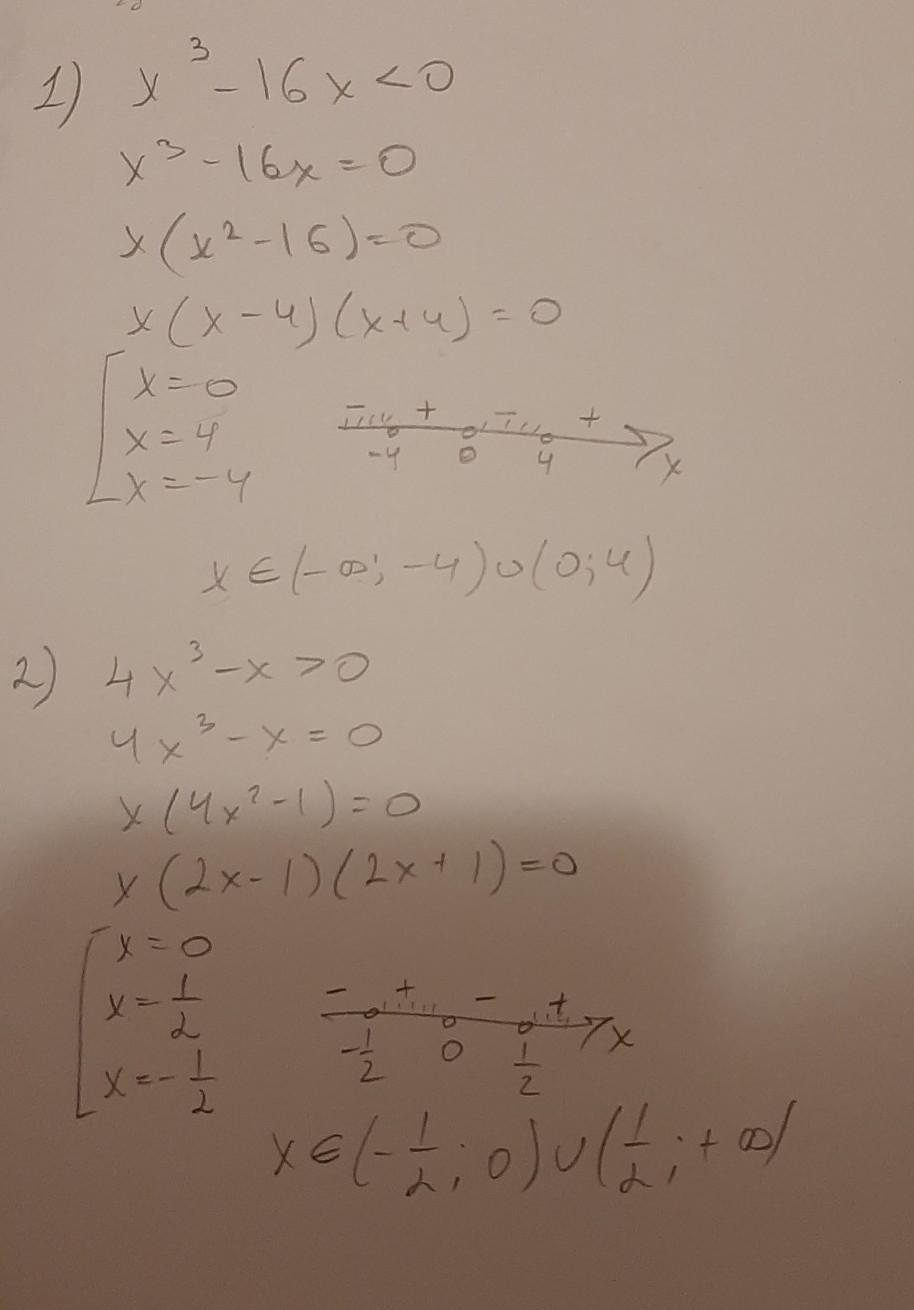 1) x³ - 16x < 0
x³ - 16x = 0
x(x² - 16) = 0
x(x - 4)(x + 4) = 0
x = 0
x = 4
x = -4
- + - +
-4 0 4 x
x ∈ (-∞; -4) ∪ (0; 4)
2) 4x³ - x > 0
4x³ - x = 0
x(4x² - 1) = 0
x(2x - 1)(2x + 1) = 0
x = 0
x = 1/2
x = -1/2
- + - +
-1/2 0 1/2 x
x ∈ (-1/2; 0) ∪ (1/2; +∞)